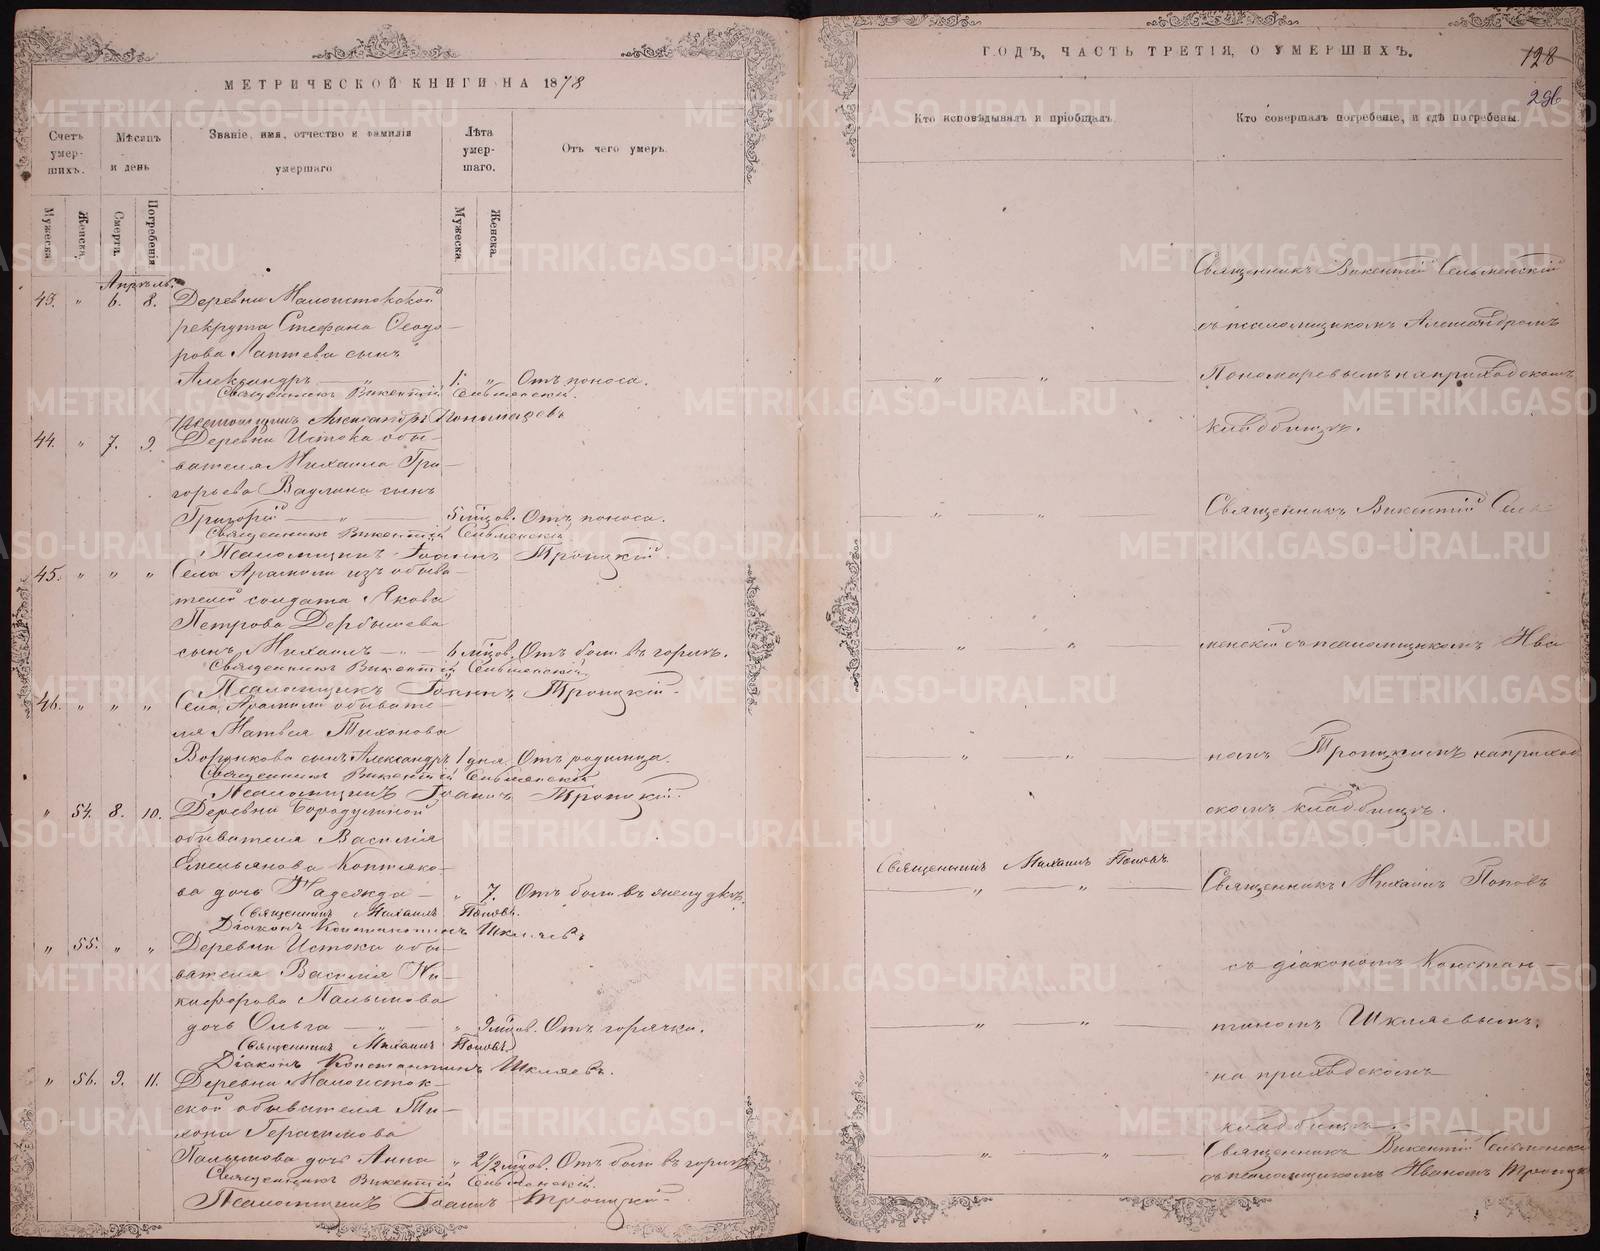 МЕТРИЧЕСКОЙ КНИГИ НА 1878
Счетъ умер- шихъ.
Мѣсяцъ и день
Званіе, имя, отчество и фамилія умершаго
Лѣта умер- шаго.
Отъ чего умеръ.
Мужеска. Женска. Смерти. Погребенія
Мужеска. Женска.
Апрѣль.
43. " 6. 8. Деревни Малоистокской
рекрута Стефана Ѳеодо-
рова Лаптева сынъ
Александръ — " — 1. " Отъ поноса.
Священникъ Викентій Сельменскій.
Псаломщикъ Александръ Пономаревъ
44. " 7. 9. Деревни Истока обы-
вателя Михаила Гри-
горьева сынъ
Григорій — " — 5 мѣсцов. Отъ поноса.
Священникъ Викентій Сельменскій
Псаломщикъ Іоаннъ Троицкій.
45. " " " Села Арамили изъ обыва-
телей солдата Якова
Петрова Дербышева
сынъ Михаилъ — " — 6 мѣсцов. Отъ боли въ горлѣ.
Священникъ Викентій Сельменскій.
Псаломщикъ Іоаннъ Троицкій.
46. " " " Села Арамили обывате-
ля Матвея Тихонова
сынъ Александръ 1 дня. Отъ родимца.
Священникъ Викентій Сельменскій
Псаломщикъ Іоаннъ Троицкій.
" 54. 8. 10. Деревни Бородулиной
обывателя Василія
Емельянова Коптяко-
ва дочь Надежда — " 7. Отъ боли въ желудкѣ.
Священникъ Михаилъ Поповъ.
Діаконъ Константинъ Шкляевъ
" 55. " " Деревни Истока обы-
вателя Василія Ни-
кифорова Палымова
дочь Ольга — " — " 9 мѣсцов. Отъ горячки.
Священникъ Михаилъ Поповъ.
Діаконъ Константинъ Шкляевъ.
" 56. 9. 11. Деревни Малоисток-
ской обывателя Ти-
хона Герасимова
Палымова дочь Анна " 2 1/2 мѣсцов. Отъ боли въ горлѣ
Священникъ Викентій Сельменскій.
Псаломщикъ Іоаннъ Троицкій.
ГОДЪ, ЧАСТЬ ТРЕТІЯ, О УМЕРШИХЪ.
128
296
Кто исповѣдывалъ и пріобщалъ.
Кто совершалъ погребеніе, и гдѣ погребены.
Священникъ Викентій Сельменскій
съ псаломщикомъ Александромъ
Пономаревымъ на приходскомъ
кладбищѣ.
Священникъ Викентій Сель-
менскій съ псаломщикомъ Ива
номъ Троицкимъ на приход
скомъ кладбищѣ.
Священникъ Михаилъ Поповъ
Священникъ Михаилъ Поповъ
съ діакономъ Констан-
тиномъ Шкляевымъ.
на приходскомъ
кладбищѣ.
Священникъ Викентій Сельменскій
съ псаломщикомъ Иваномъ Троицк
METRIKI.GASO-URAL.RU